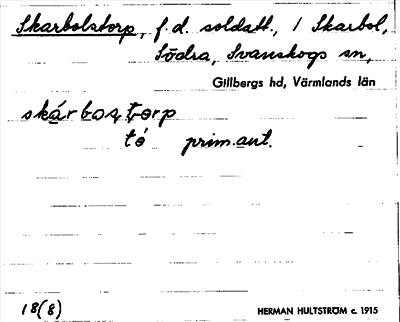 Skarbolstorp, f.d. soldatt., i Skarbol,
Södra, Svanskogs sn,
Gillbergs hd, Värmlands län
skárbostorp
tó prim.ant.
18(8)
HERMAN HULTSTRÖM c. 1915